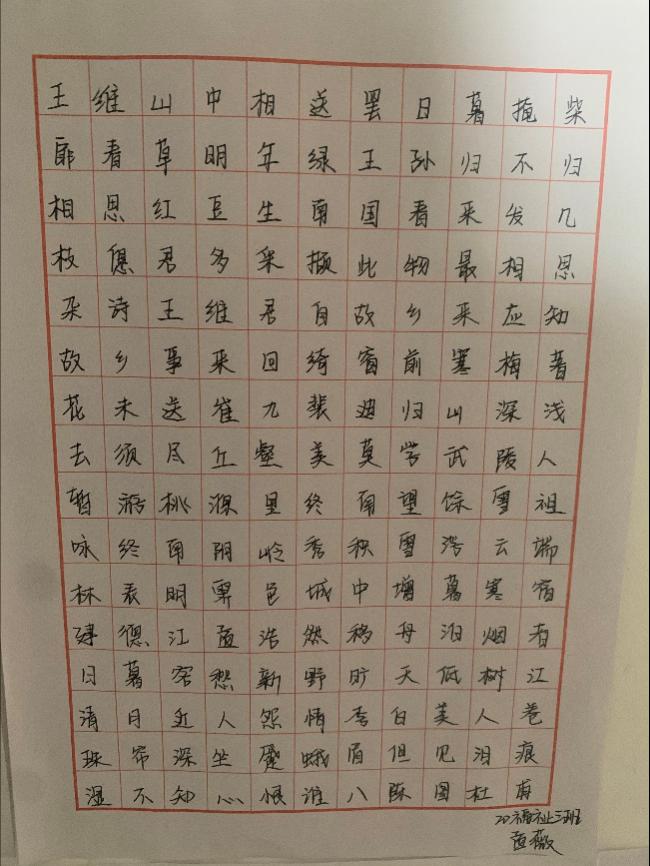 王维山中相送罢日暮掩柴
扉看草明年绿王孙归不归
相思红豆生南国看来发几
枝愿君多采撷此物最相思
杂诗王维君自故乡来应知
故乡事来日绮窗前寒梅著
花未送崔九裴迪归山深浅
去须尽丘壑美莫学武陵人
暂游桃源里终南望馀雪祖
咏终南阴岭秀积雪浮云端
林表明霁色城中增暮寒宿
建德江孟浩然移舟泊烟渚
日暮客愁新野旷天低树江
清月近人怨情李白美人卷
珠帘深坐蹙蛾眉但见泪痕
湿不知心恨谁八阵图杜甫
20福祉三班
孟薇